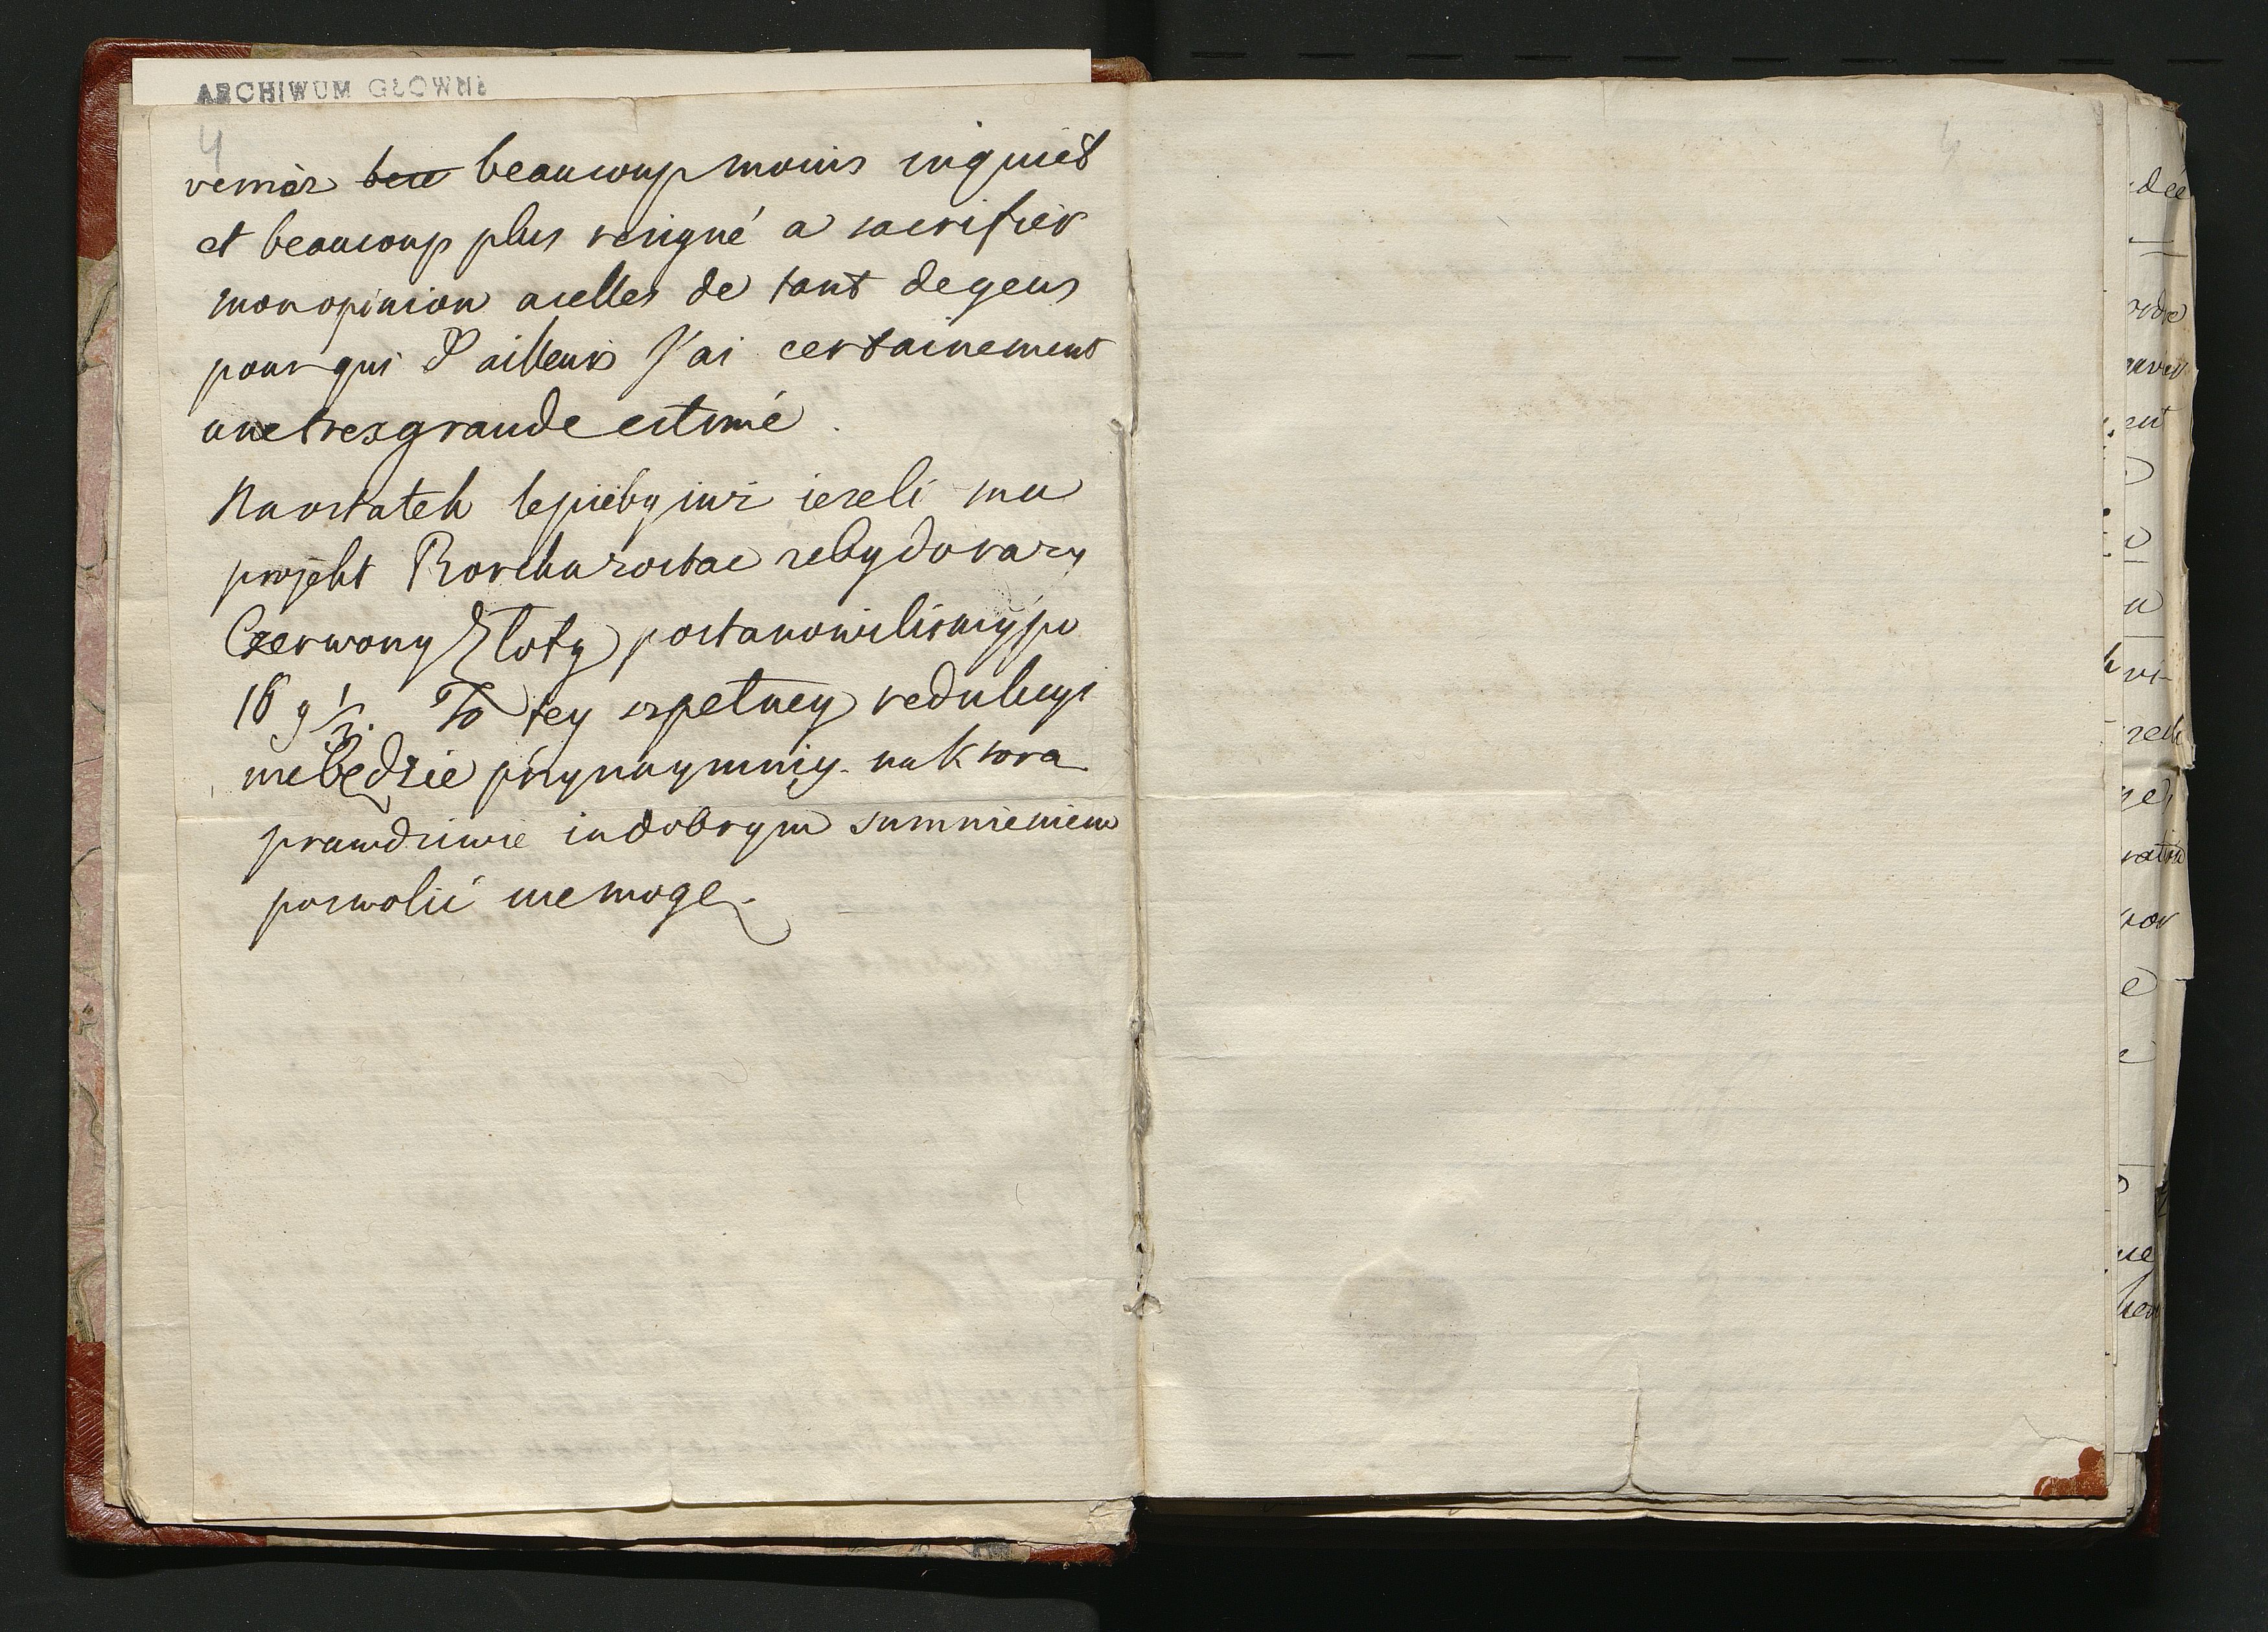 ARCHIWUM GŁOWNE
4
beaucoup moins inquiét
et beaucoup plus resigné a sacrifier
mon opinion acelles de tant degens
pour qui D'ailleurs J'ai certainement
une tres grande estimé.
Naostatek lepieby iuz iezeli ma
projekt Borcha zostac zeby
Czerwony Złoty postanowilismy po
16 g 1/2. To tey szpetney redukcyi
niebędzie przynaymniy na ktora
prawdziwie indobrym summieniem
pozwolić niemogę.